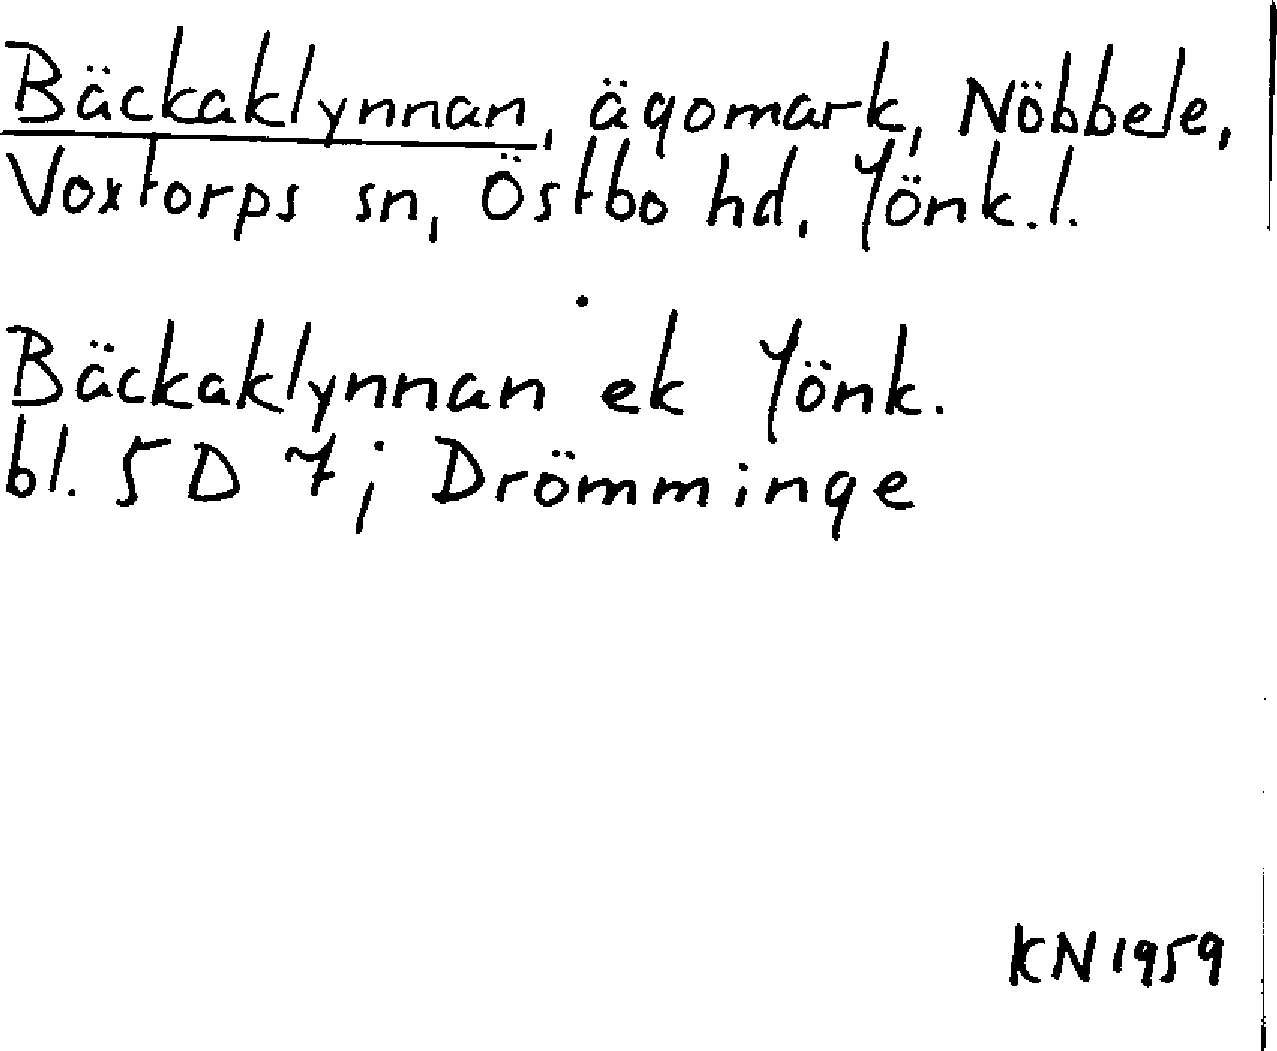 Bäckaklynnan, ägomark, Nöbbele,
Voxtorps sn, Östbo hd, Jönk.l.
Bäckaklynnan ek Jönk.
bl. 5D 7; Drömminge
KN 1959